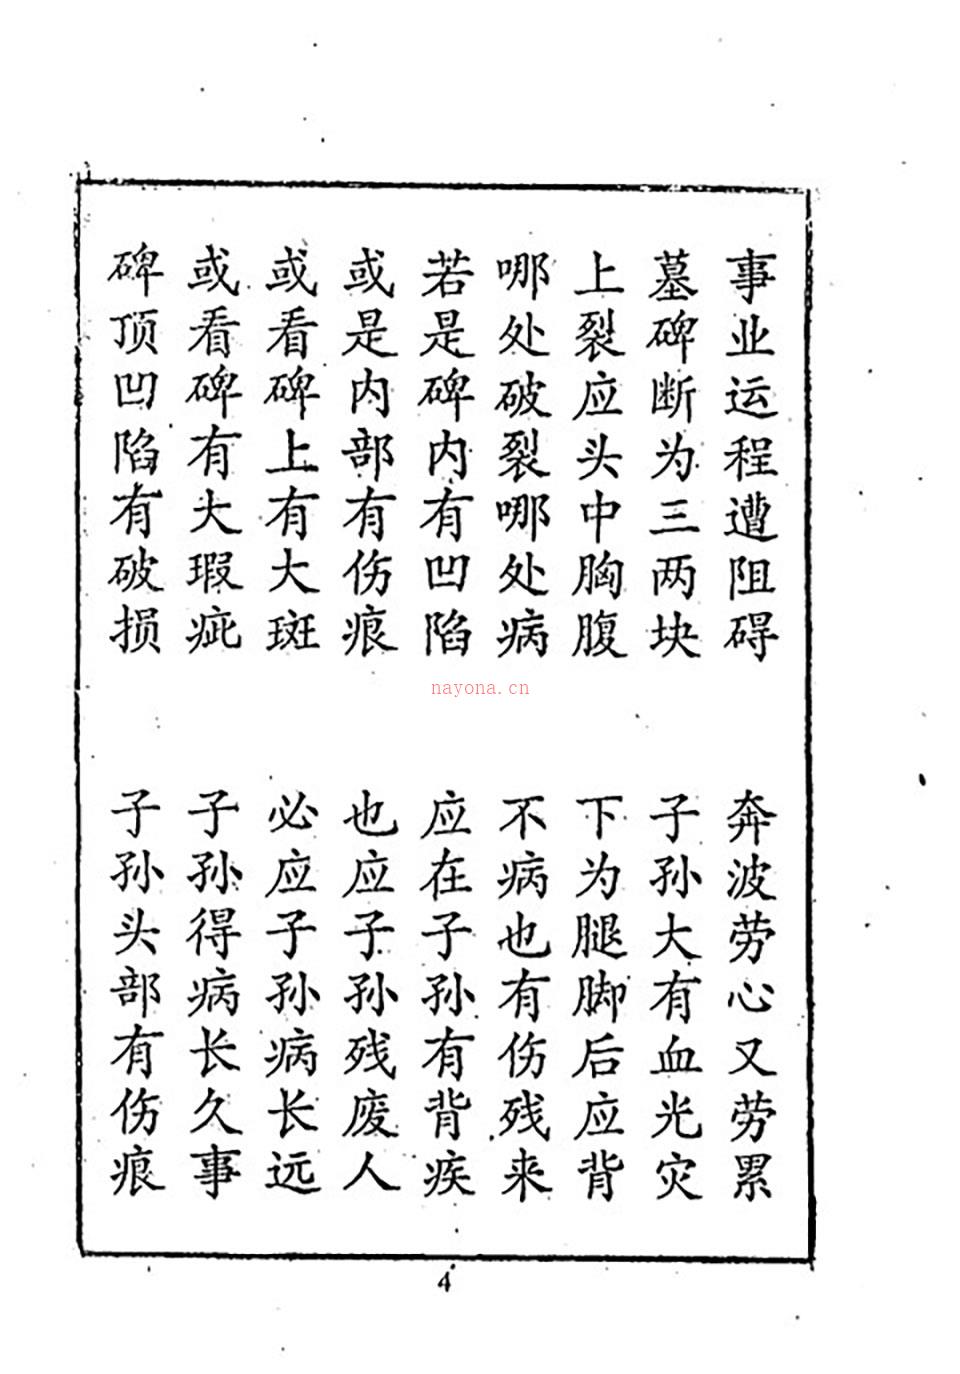 事业运程遭阻碍　奔波劳心又劳累
墓碑断为三两块　子孙大有血光灾
上裂应头中胸腹　下为腿脚后应背
哪处破裂哪处病　不病也有伤残来
若是碑内有凹陷　应在子孙有背疾
或是内部有伤痕　也应子孙残废人
或看碑上有大斑　必应子孙病长远
或看碑有大瑕疵　子孙得病长久事
碑顶凹陷有破损　子孙头部有伤痕
nayona.cn
4